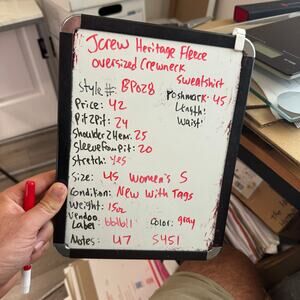 Jcrew Heritage Fleece
oversized Crewneck
sweatshirt
Style #: BP028
Poshmark: 45
Price: 42
Length:
Pit2Pit: 24
Waist:
Shoulder2Hem: 25
SleeveFromPit: 20
Stretch: Yes
Size: US Women's S
Condition: New With Tags
Weight: 15oz
Vendoo
Label:
Color: gray
Notes: U7 S451